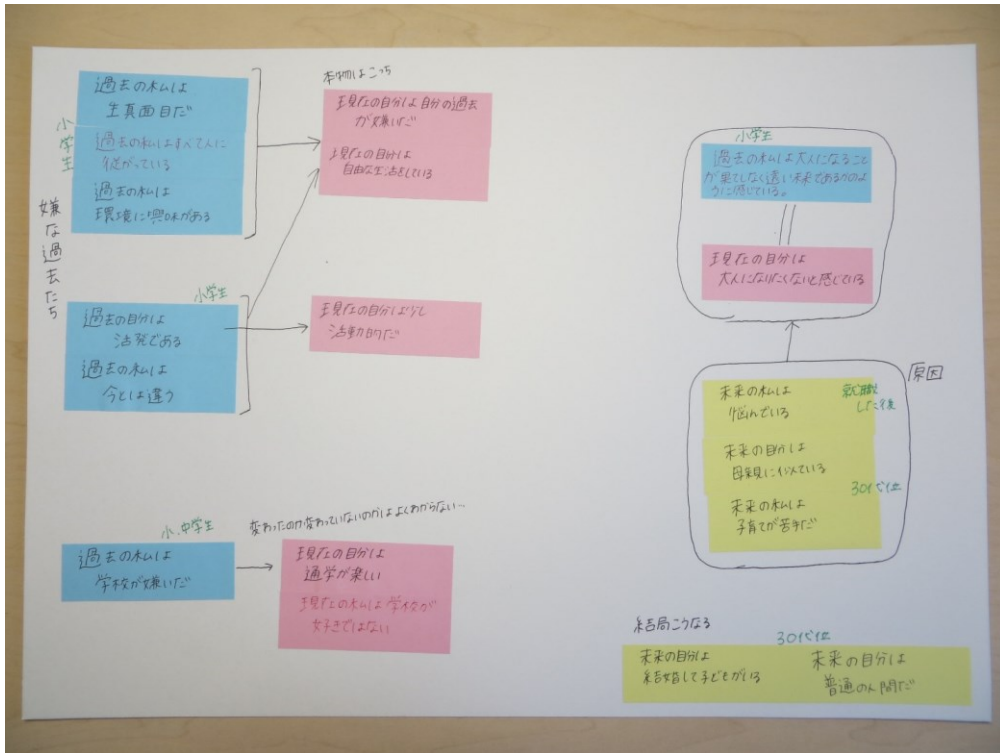 嫌な過去たち
小学生
過去の私は
生真面目だ
過去の私はすべて人に
従がっている
過去の私は
環境に興味がある
本物はこっち
現在の自分は自分の過去
が嫌いだ
現在の自分は
自由な生活をしている
小学生
過去の自分は
活発である
過去の私は
今とは違う
現在の自分は少し
活動的だ
小、中学生
過去の私は
学校が嫌いだ
変わったのか変わっていないのかはよくわからない…
現在の自分は
通学が楽しい
現在の私は学校が
好きではない
小学生
過去の私は大人になること
が果てしなく遠い未来であるかのよ
うに感じている。
現在の自分は
大人になりたくないと感じている
原因
未来の私は
悩んでいる
就職
した後
未来の自分は
母親に似ている
30代位
未来の私は
子育てが苦手だ
結局こうなる
30代位
未来の自分は
結婚して子どもがいる
未来の自分は
普通の人間だ